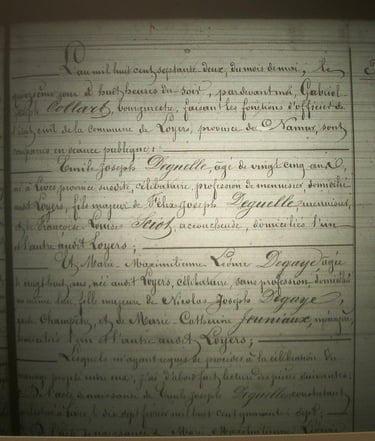 L'an mil huit cent septante deux, du mois de mai, le
quinzième jour à huit heures du soir, pardevant moi, Gabriel
Joseph Collart, bourgmestre, faisant les fonctions d'officier de
l'état civil de la commune de Loyers, province de Namur, sont
comparus en séance publique:
Emile Joseph Deguelle, âgé de vingt cinq ans,
né à Lives province susdite, célibataire, profession de menuisier, domicilié
audit Loyers, fils majeur de Félix Joseph Deguelle, menuisier,
et de Françoise Louise Piot, accoucheuse, domiciliés l'un
et l'autre audit Loyers;
Et Marie Maximilienne Léonie Degaye, âgée
de vingt huit ans, née audit Loyers, célibataire, sans profession, domiciliée
au même lieu, fille majeure de Nicolas Joseph Degaye,
garde Champêtre, et de Marie Catherine Jouniaux, ménagère,
domiciliés l'un et l'autre audit Loyers;
Lesquels m'ayant requis de procéder à la célébration du
mariage projeté entre eux; j'ai d'abord fait lecture des pièces suivantes:
de l'acte de naissance de Emile Joseph Deguelle, constatant
le dix sept février mil huit cent quarante sept;
de l'acte de naissance de Marie Maximilienne Léonie